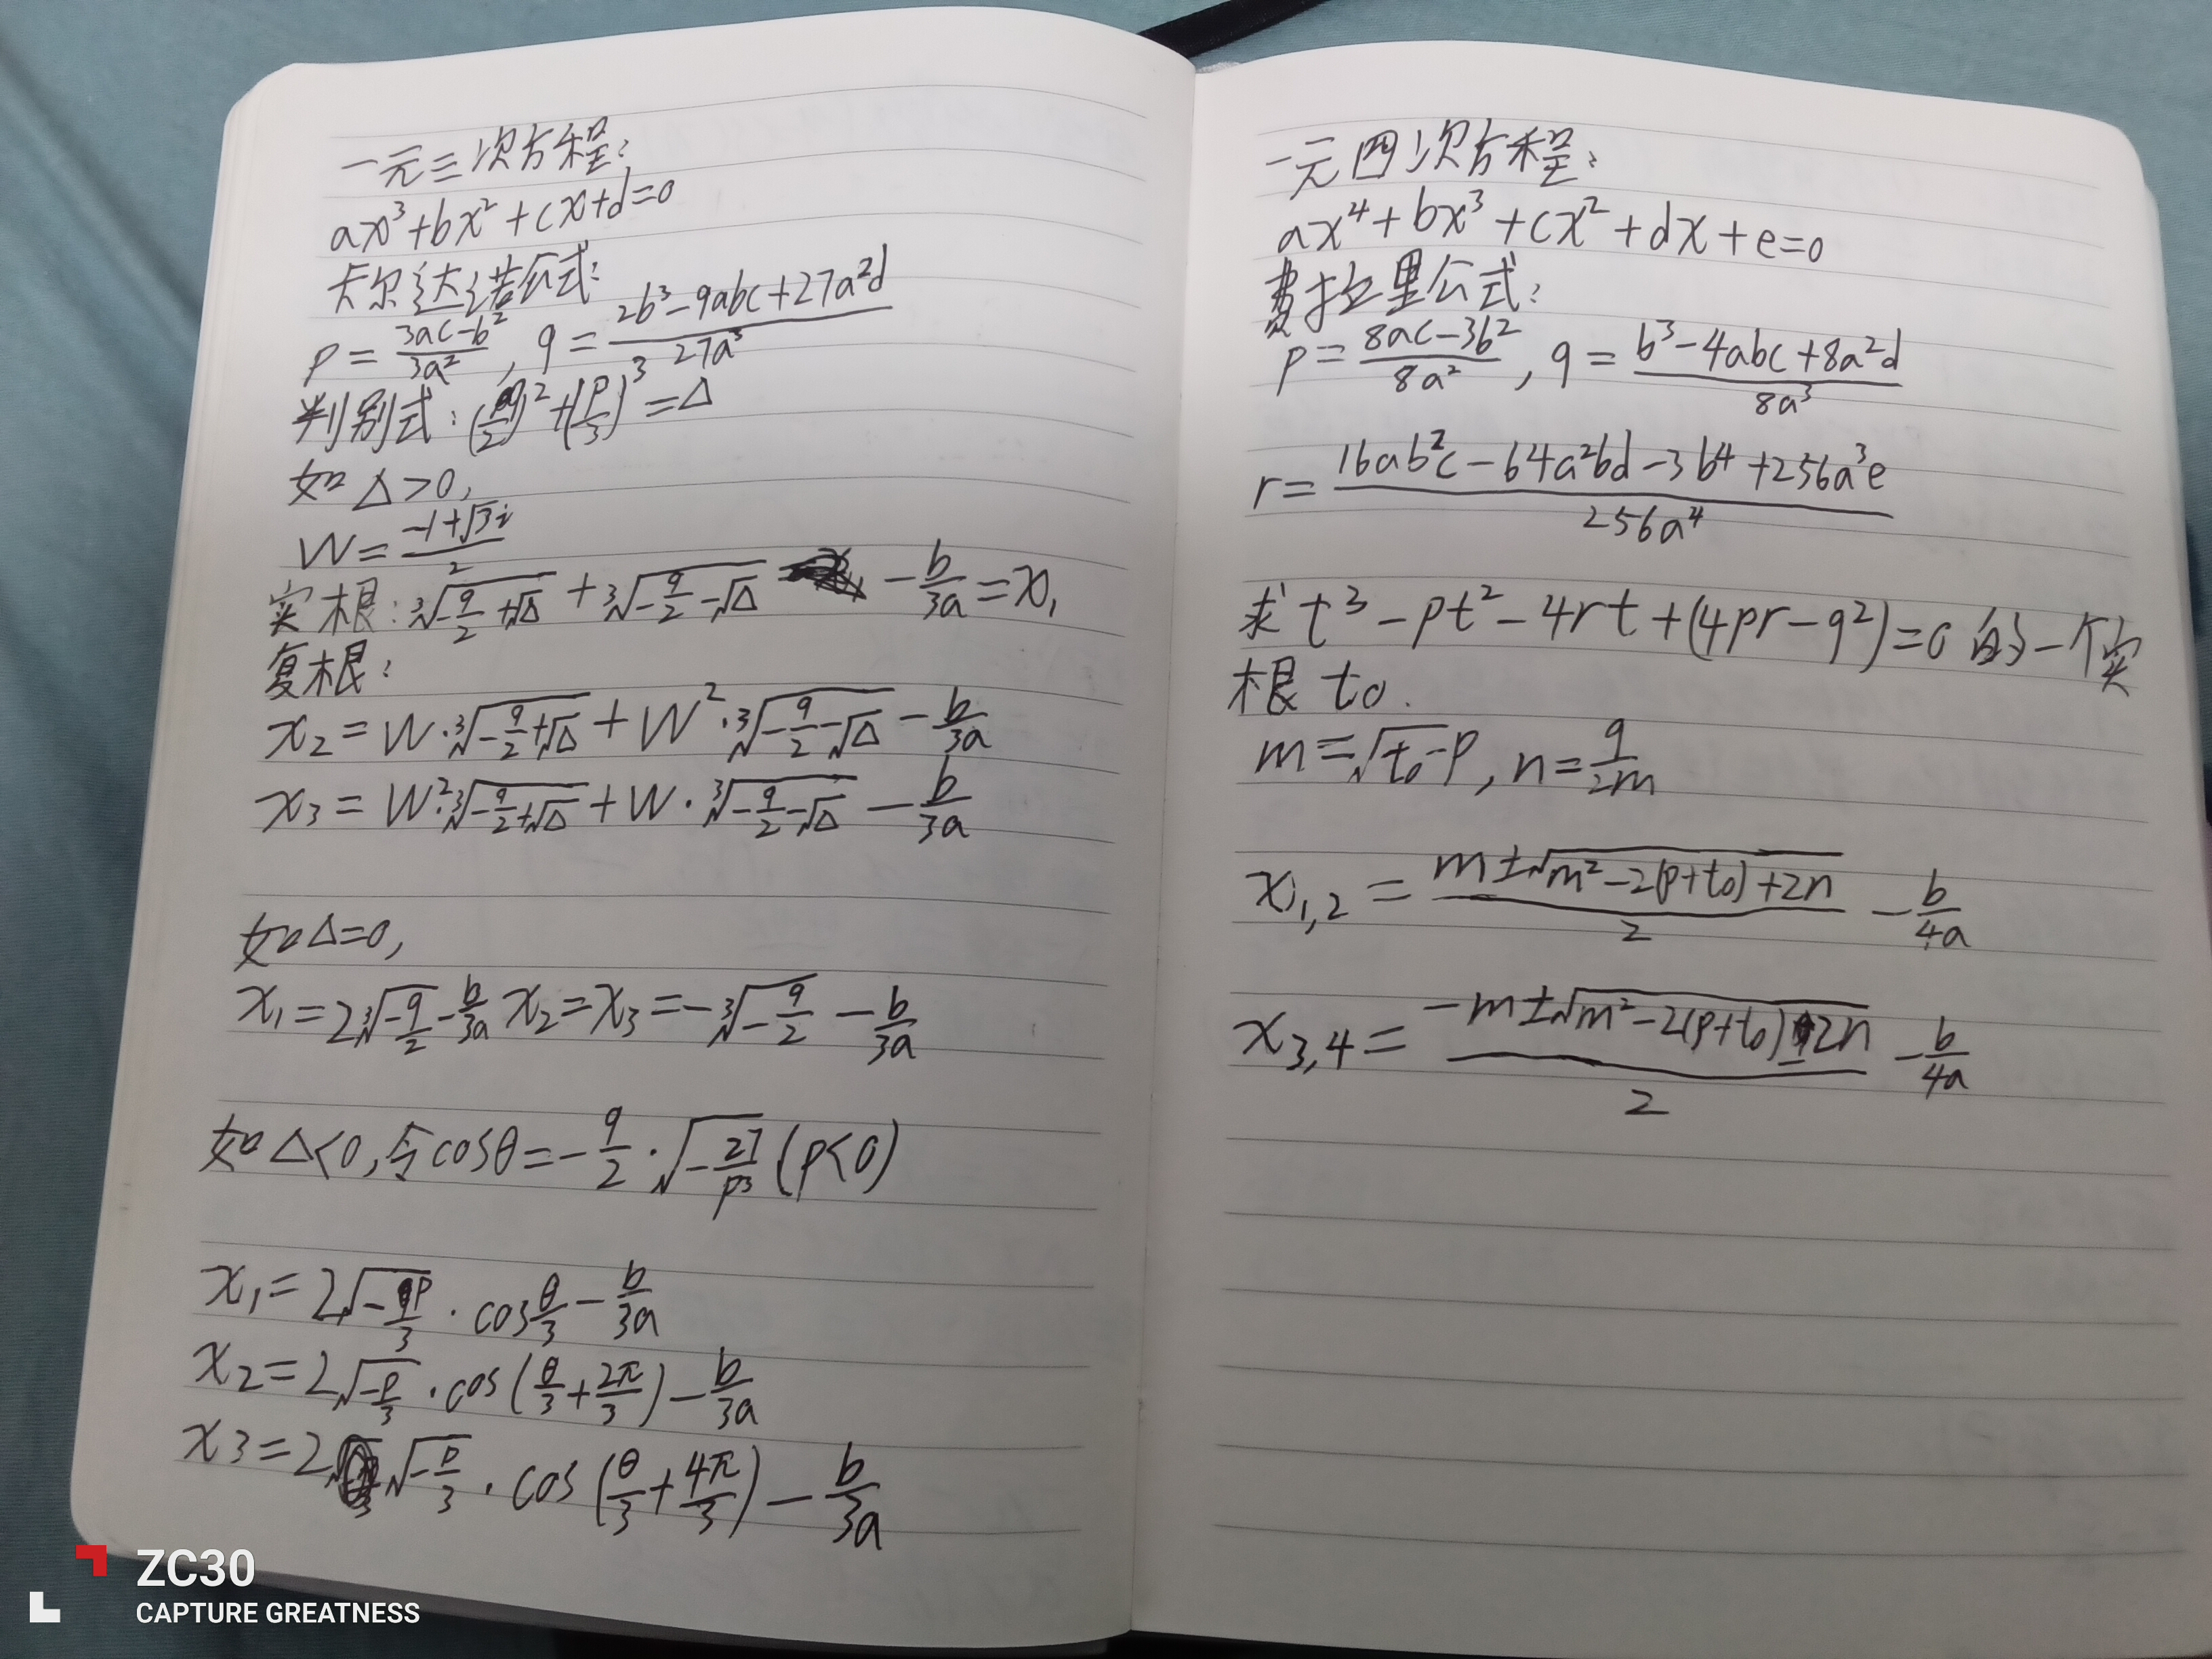 一元三次方程:
ax³+bx²+cx+d=0
卡尔达诺公式:
p=\frac{3ac-b²}{3a²}, q=\frac{2b³-9abc+27a²d}{27a³}
判别式:(\frac{q}{2})²+(\frac{p}{3})³=Δ
如Δ>0,
W=\frac{-1+√3i}{2}
实根:∛{-\frac{q}{2}+√Δ}+∛{-\frac{q}{2}-√Δ}-\frac{b}{3a}=x₁
复根:
x₂=W·∛{-\frac{q}{2}+√Δ}+W²·∛{-\frac{q}{2}-√Δ}-\frac{b}{3a}
x₃=W²·∛{-\frac{q}{2}+√Δ}+W·∛{-\frac{q}{2}-√Δ}-\frac{b}{3a}
如Δ=0,
x₁=2∛{-\frac{q}{2}}-\frac{b}{3a} x₂=x₃=-∛{-\frac{q}{2}}-\frac{b}{3a}
如Δ<0,令cosθ=-\frac{q}{2}·√{-\frac{27}{p³}}(p<0)
x₁=2√{-\frac{p}{3}}·cos\frac{θ}{3}-\frac{b}{3a}
x₂=2√{-\frac{p}{3}}·cos(\frac{θ}{3}+\frac{2π}{3})-\frac{b}{3a}
x3=2√{-\frac{p}{3}}·cos(\frac{θ}{3}+\frac{4π}{3})-\frac{b}{3a}
一元四次方程:
ax⁴+bx³+cx²+dx+e=0
费拉里公式:
p=\frac{8ac-3b²}{8a²}, q=\frac{b³-4abc+8a²d}{8a³}
r=\frac{16ab²c-64a²bd-3b⁴+256a³e}{256a⁴}
求t³-pt²-4rt+(4pr-q²)=0的一个实
根t₀.
m=√{t₀-p}, n=\frac{q}{2m}
x₁,₂=\frac{m±√{m²-2(p+t₀)+2n}}{2}-\frac{b}{4a}
x₃,₄=\frac{-m±√{m²-2(p+t₀)-2n}}{2}-\frac{b}{4a}
ZC30
CAPTURE GREATNESS